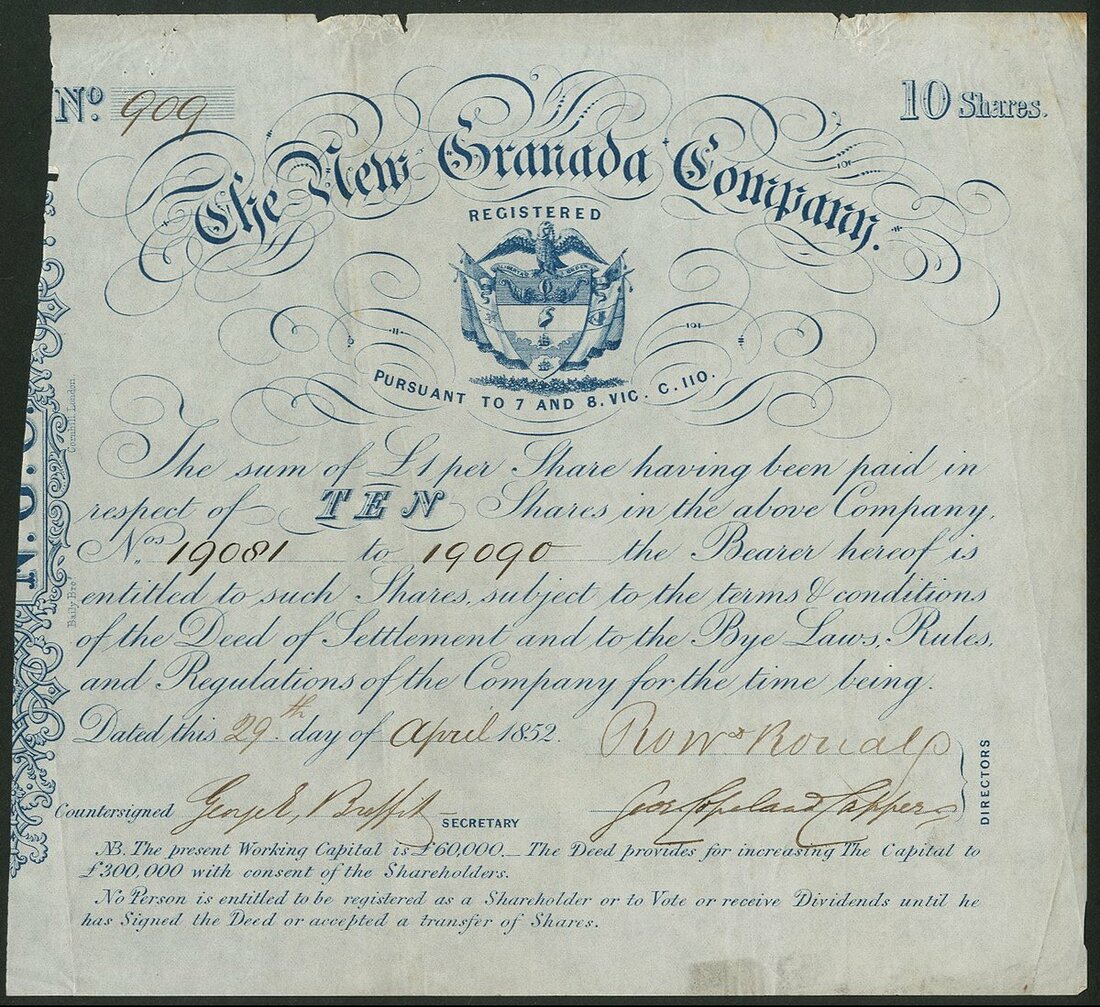 No. 909
10 Shares.
The New Granada Company.
REGISTERED
LIBERTAD Y ORDEN
PURSUANT TO 7 AND 8. VIC. C. 110.
The sum of £1 per Share having been paid in
respect of TEN Shares in the above Company,
Nos. 19081 to 19090 the Bearer hereof is
entitled to such Shares, subject to the terms & conditions
of the Deed of Settlement and to the Bye Laws, Rules,
and Regulations of the Company for the time being.
Dated this 29th day of April 1852.
Countersigned George E, SECRETARY
Geo Copeland Capper
DIRECTORS
NB. The present Working Capital is £60,000._ The Deed provides for increasing The Capital to
£300,000 with consent of the Shareholders.
No Person is entitled to be registered as a Shareholder or to Vote or receive Dividends until he
has Signed the Deed or accepted a transfer of Shares.
N. G. C.
Baily Bros Cornhill, London